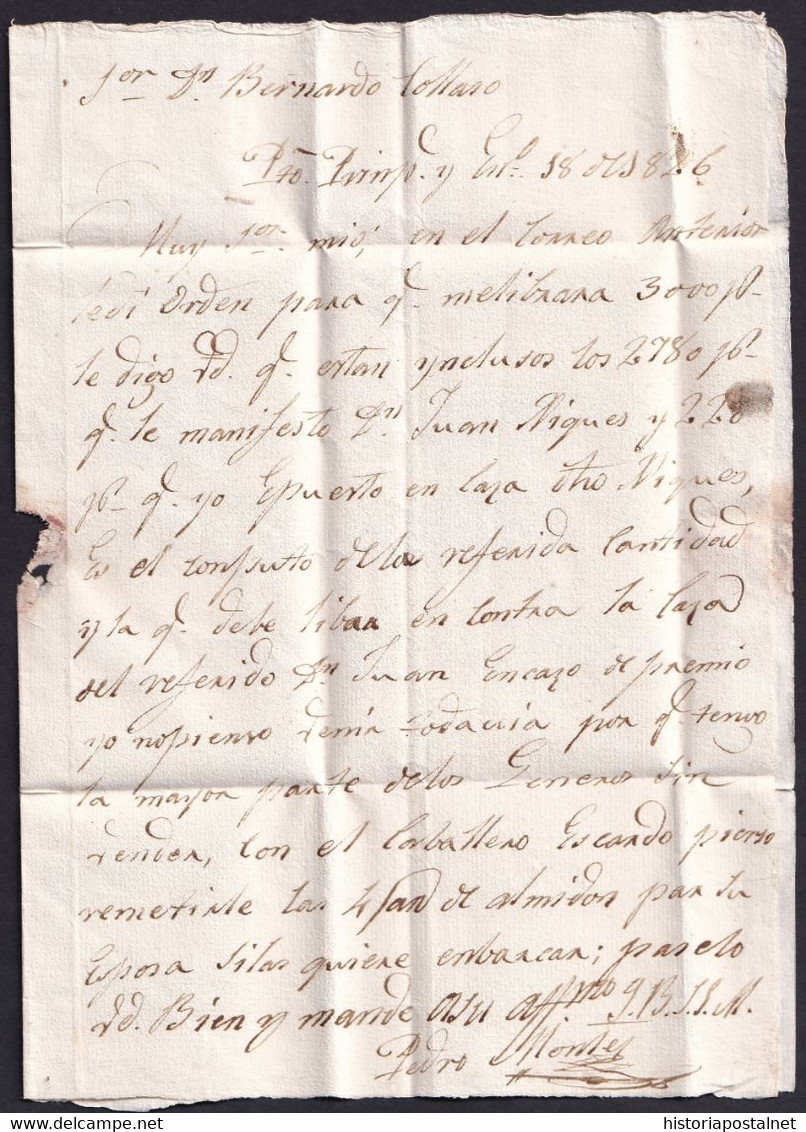 Sor Dn Bernardo Collaso
Pto. Prinp. y En.o 18 de 1826
Muy Sor. mio, en el Correo Anterior
ledi Orden para q. melibrara 3000 ps
le digo Vd. q. estan ynclusos los 2780 ps
q. le manifesto Dn Juan Niques y 220
ps q. yo Epuesto en Casa dho Niques,
Es el Conputo dela referida Cantidad
y la q. debe librar en Contra la Casa
del referido Dn Juan Encazo de premio
yo nopienso Venir todavia por q. tengo
la mayor parte delos Generos Sin
Vender, Con el Caballero Escardo pienso
remetirle las 4 de almidon par Su
Esposa Silas quiere enbarcar; paselo
Vd. Bien y mande asu Affmo S.B.S.S.M.
Pedro Montes
historiapostalnet